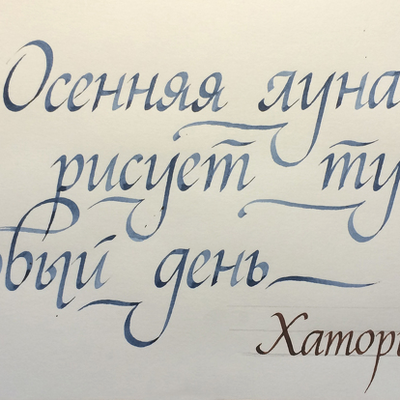 Осенняя луна
рисует ту
овый день
Хатори